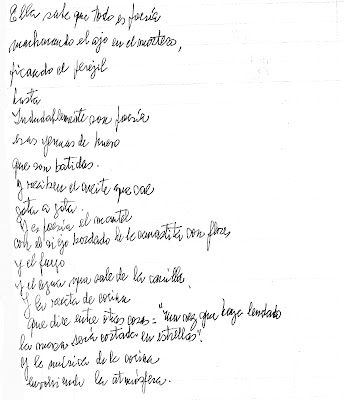 Ella sabe que todo es poesía
machacando el ajo en el mortero,
picando el perejil
hasta
Indudablemente son poesía
esas yemas de huevo
que son batidas.
Y reciben el aceite que cae
gota a gota.
Y es poesía el mantel
con el viejo bordado de la canastita con flores
y el fuego
y el agua que sale de la canilla.
Y la receta de cocina
que dice entre otras cosas: "Una vez que haya leudado
la masa será cortada en estrellas".
Y la música de la cocina
envolviendo la atmósfera.